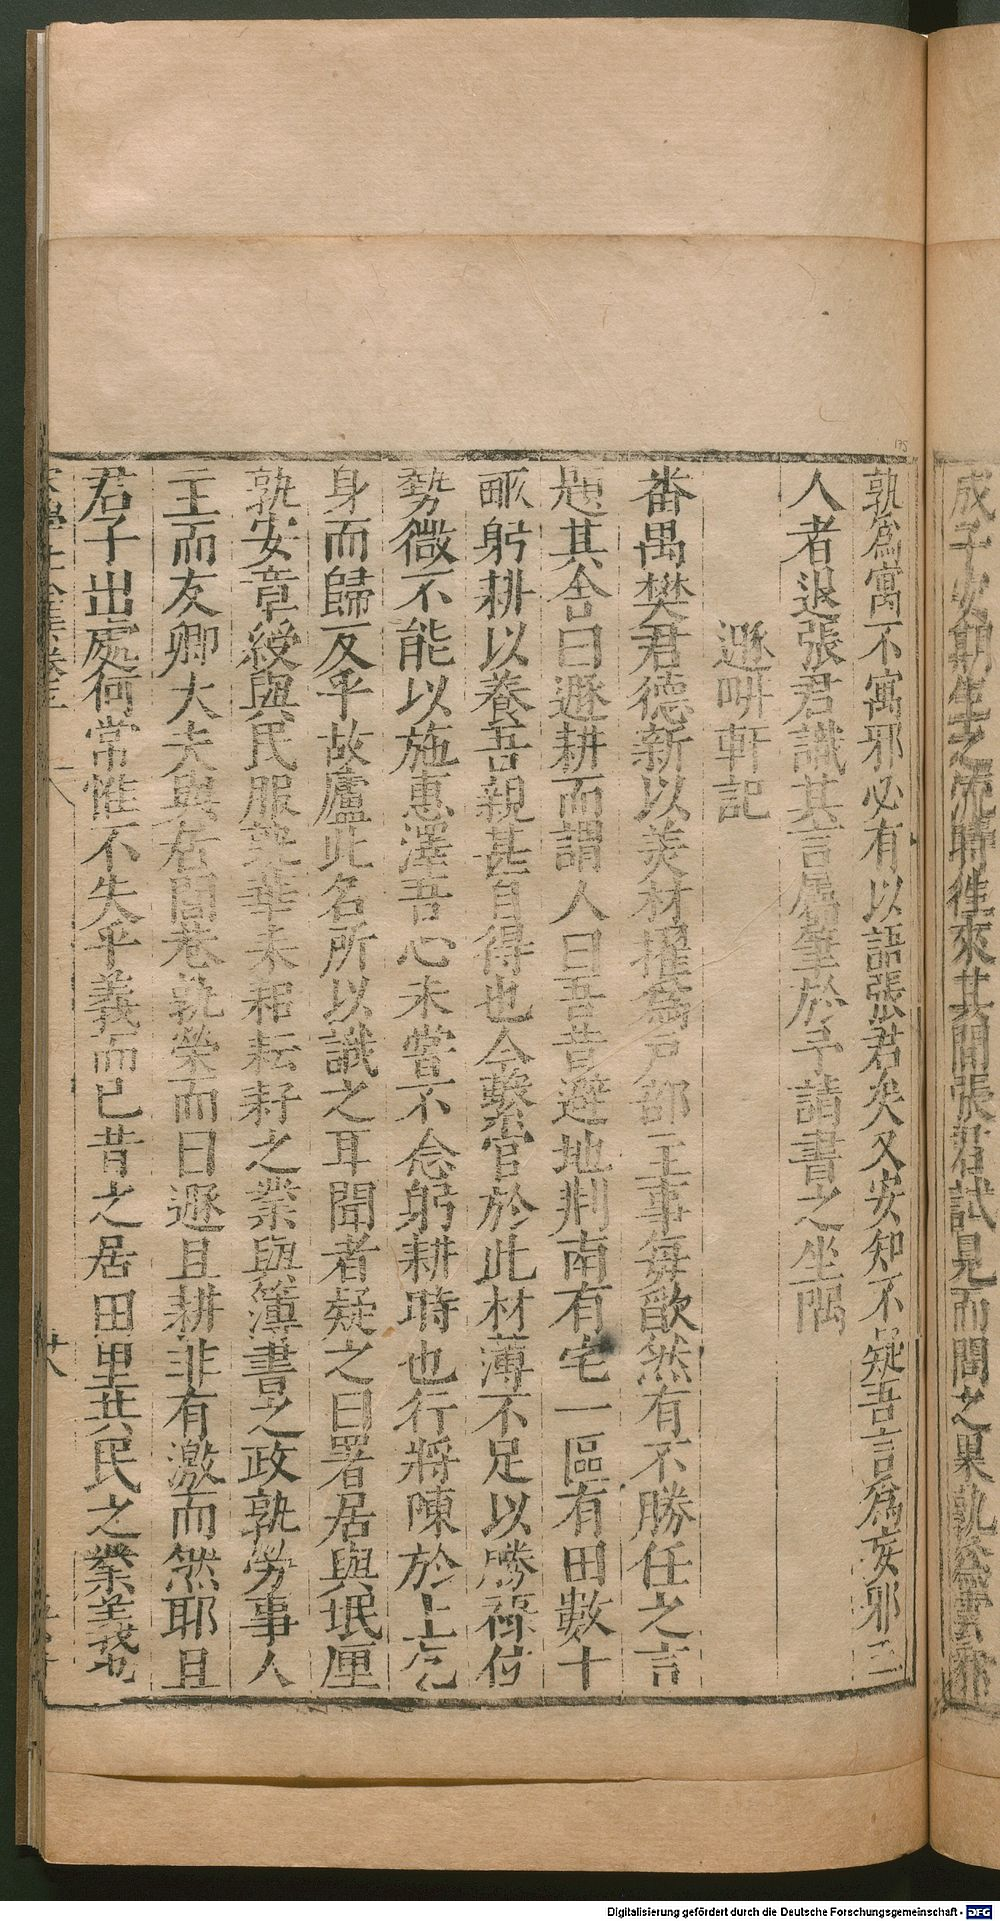 成子安期生之流時往來其間張君試見而問之果孰爲雲邪
孰爲寓不寓邪必有以語張君矣又安知不疑吾言爲妄邪三
人者退張君識其言屬筆於予請書之坐隅
遯畊軒記
番禺樊君德新以美材擢爲戸部主事每欿然有不勝任之言
題其舍曰遯耕而謂人曰吾昔避地荆南有宅一區有田數十
畝躬耕以養吾親甚自得也今繫官於此材薄不足以勝祿位
勢微不能以施惠澤吾心未嘗不念躬耕時也行將陳於上乞
身而歸反乎故廬此名所以識之耳聞者疑之曰署居與垊厘
孰安章綬與民服孰華耒耜耘耔之業與簿書之政孰勞事人
主而友卿大夫與居閭巷孰榮而曰遯且耕非有激而然耶且
君子出處何常惟不失乎義而已昔之居田里共民之業羊
宋學士全集卷五
十八
175
Digitalisierung gefördert durch die Deutsche Forschungsgemeinschaft - DFG